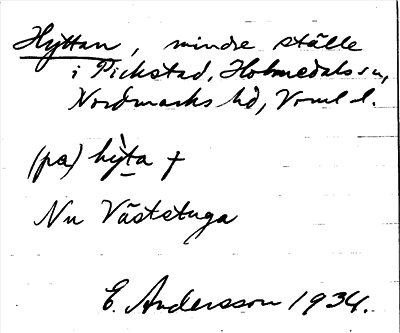 Hyttan, mindre ställe
i Pickstad, Holmedals sn,
Nordmarks hd, Vrml.
(pa) hỳta +
Nu Väststuga
E. Andersson 1934.